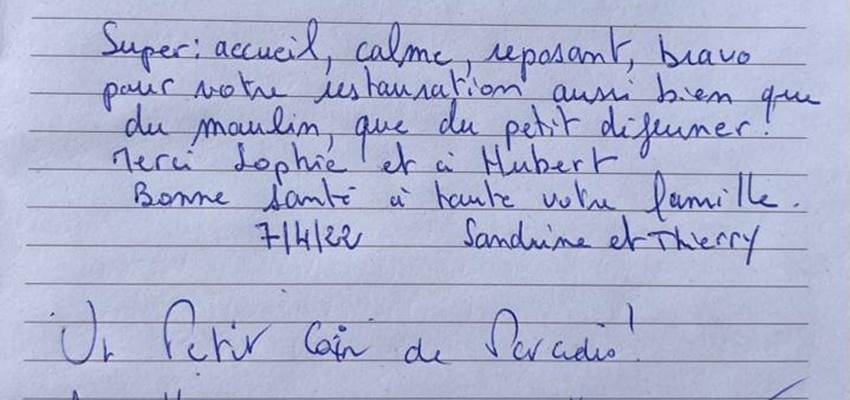 Super: accueil, calme, reposant, bravo
pour votre restauration aussi bien que
du moulin, que du petit déjeuner!
Merci Sophie et à Hubert
Bonne santé à toute votre famille.
7/4/22 Sandrine et Thierry
Un Petit Coin de Paradis!